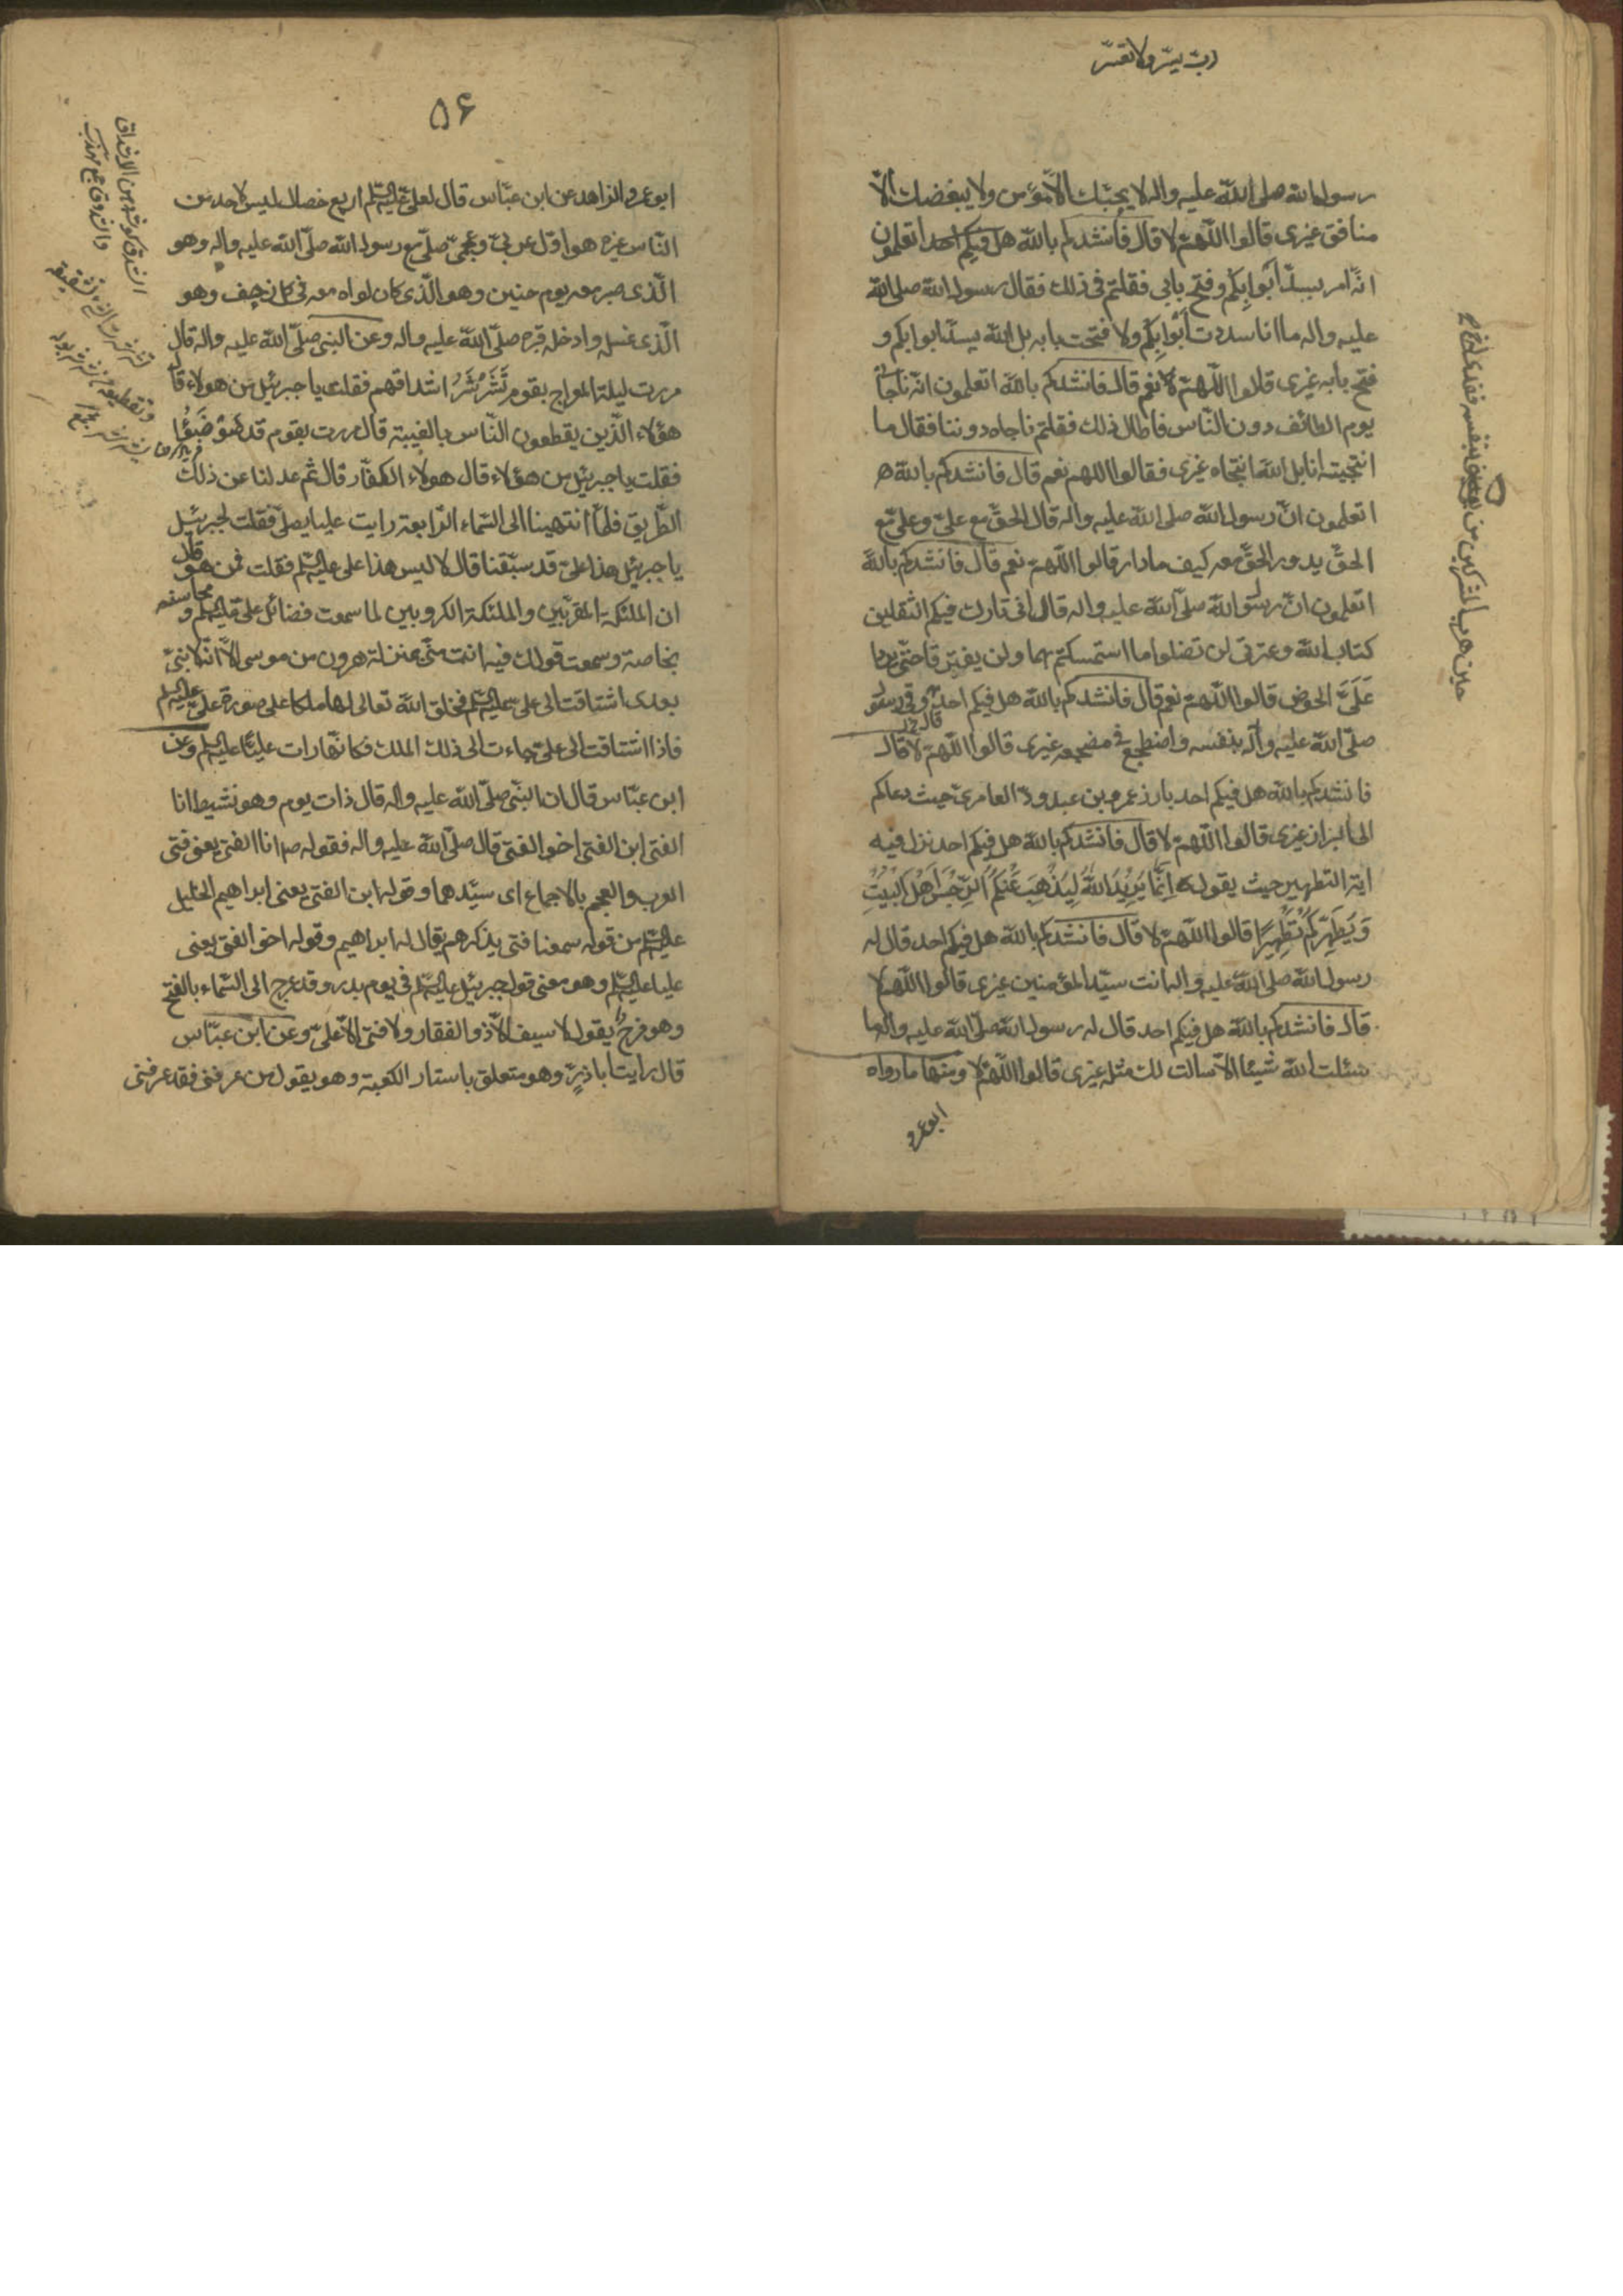 رب يسّر ولا تعسّر
رسول الله صلى الله عليه واله لا يحبّك الا مؤمن ولا يبغضك الّا
منافق غيرى قالوا اللّهمّ لا قال فانشدكم بالله هل فيكم احد اتعلمون
انّه امر بسدّ ابوابكم وفتح بابى فقلتم فى ذلك فقال رسول الله صلى الله
عليه واله ما انا سددت ابوابكم ولا فتحت بابه بل الله سدّ ابوابكم و
فتح بابه غيرى قالوا اللّهمّ نعم قال فانشدكم بالله اتعلمون انّه ناجانى
يوم الطائف دون النّاس فاطال ذلك فقلتم ناجاه دوننا فقال ما
انتجيته انا بل الله انتجاه غيرى فقالوا اللهم نعم قال فانشدكم بالله ه
اتعلمون انّ رسول الله صلى الله عليه واله قال الحقّ مع علىّ وعلىّ مع
الحقّ يدور الحقّ معه كيف ما دار قالوا اللّهمّ نعم قال فانشدكم بالله
اتعلمون انّ رسول الله صلّى الله عليه واله قال انى تارك فيكم الثقلين
كتاب الله وعترتى لن تضلوا ما استمسكتم بهما ولن يفترقا حتّى يردا
عَلَىَّ الحوض قالوا اللّهمّ نعم قال فانشدكم بالله هل فيكم احد وقى رسول
صلّى الله عليه واله بنفسه واضطجع فى مضجعه غيرى قالوا اللّهمّ لا قال
فانشدكم بالله هل فيكم احد بارز عمرو بن عبد ودّ العامرىّ حيث دعاكم
الى البراز غيرى قالوا اللّهمّ لا قال فانشدكم بالله هل فيكم احد نزل فيه
اية التطهير حيث يقول اِنَّمَا يُرِيْدُ اللهُ لِيُذْهِبَ عَنْكُمُ الرِّجْسَ اَهْلَ الْبَيْتِ
وَيُطَهِّرَكُمْ تَطْهِيْرًا قالوا اللّهمّ لا قال فانشدكم بالله هل فيكم احد قال له
رسول الله صلى الله عليه واله انت سيّد المؤمنين غيرى قالوا اللّهمّ لا
قال فانشدكم بالله هل فيكم احد قال له رسول الله صلّى الله عليه واله ما
سئلت الله شيئا الّا سالت لك مثله غيرى قالوا اللّهمّ لا ومنها ما رواه
ابو عمرو
۵۶
ابو عمرو الزاهد عن ابن عبّاس قال لعلىّ عليه السّلم اربع خصال ليس لاحد من
النّاس غيره هو اوّل عربىّ وعجمىّ صلّى مع رسول الله صلّى الله عليه واله وهو
الّذى صبر معه يوم حنين وهو الّذى كان لواه معه فى كل زحف وهو
الّذى غسله وادخله قبره صلّى الله عليه واله وعن النبى صلّى الله عليه واله قال
مررت ليلة المعراج بقوم تُشَرْشَرُ اشداقهم فقلت يا جبرئيل من هولاء قال
هؤلاء الّذين يقطعون النّاس بالغيبة قال مررت بقوم قد ضَوْضَؤُا
فقلت يا جبرئيل من هؤلاء قال هولاء الكفّار قال ثم عدلنا عن ذلك
الطّريق فلمّا انتهينا الى السّماء الرّابعة رايت عليا يصلّى فقلت لجبرئيل
يا جبرئيل هذا علىّ قد سبّقنا قال لا ليس هذا على عليه السّلم فقلت فمن هو قال
ان الملئكة المقرّبين والملئكة الكروبيين لما سمعت فضائل علىّ عليه السّلم و محاسنه
بخاصة وسمعت قولك فيه انت منّى بمنزلة هرون من موسى الّا انّه لا نبىّ
بعدى اشتاقت الى علىّ عليه السّلم فخلق الله تعالى لها ملكا على صورة علىّ عليه السّلم
فاذا اشتاقت الى علىّ جاءت الى ذلك الملك فكانّها رات عليّا عليه السّلم وعن
ابن عبّاس قال ان النبّى صلّى الله عليه واله قال ذات يوم وهو نشيط انا
الفتى ابن الفتى اخو الفتى قال صلّى الله عليه واله فقوله انا الفتى يعنى فتى
العرب والعجم بالاجماع اى سيّدهما وقوله ابن الفتى يعنى ابراهيم الخليل
عليه السّلم من قوله سمعنا فتى يذكرهم يقال له ابراهيم وقوله اخو الفتى يعنى
عليا عليه السّلم وهو معنى قول جبرئيل عليه السّلم فى يوم بدر وقد عرج الى السّماء بالفتح
وهو فرح يقول لا سيف الّا ذو الفقار ولا فتى الّا علىّ وعن ابن عبّاس
قال رايت اباذرّ وهو متعلق باستار الكعبة وهو يقول من عرفنى فقد عرفنى